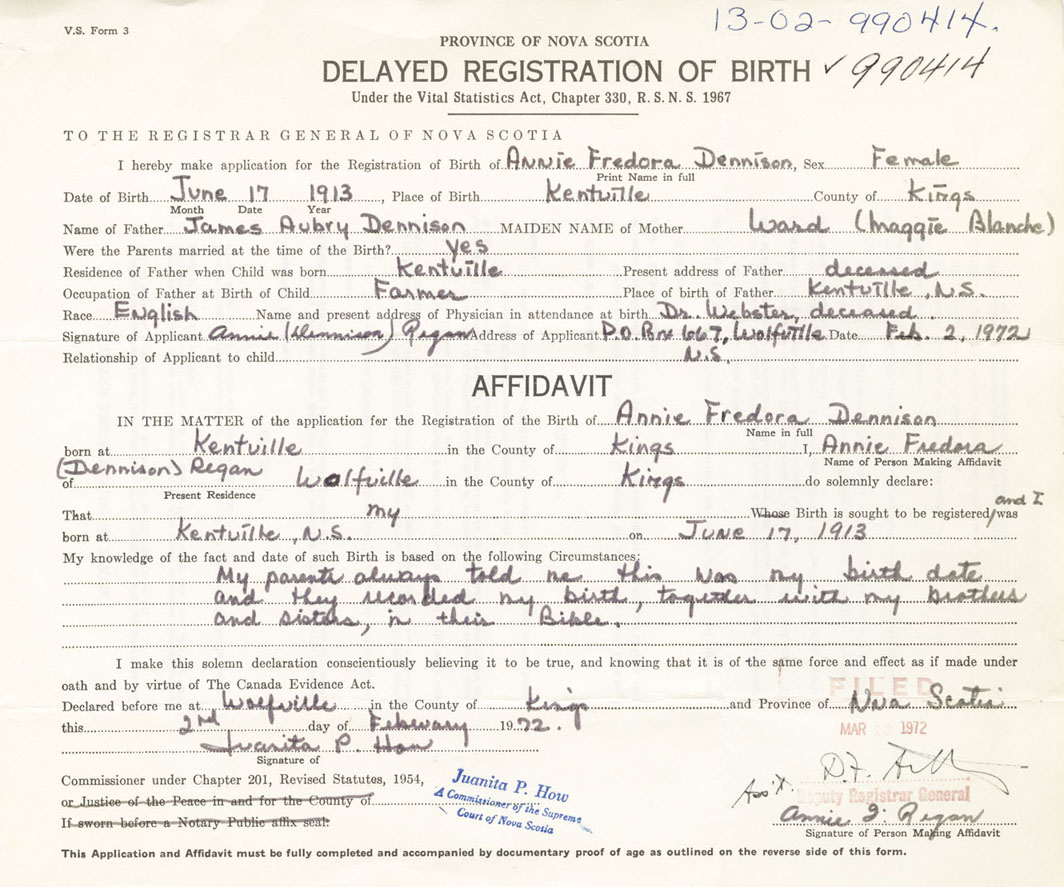 V.S. Form 3
13-02-990414.
PROVINCE OF NOVA SCOTIA
DELAYED REGISTRATION OF BIRTH ✓ 990414
Under the Vital Statistics Act, Chapter 330, R.S.N.S. 1967
TO THE REGISTRAR GENERAL OF NOVA SCOTIA
I hereby make application for the Registration of Birth of Annie Fredora Dennison, Sex Female
Print Name in full
Date of Birth June 17 1913, Place of Birth Kentville County of Kings
Month Date Year
Name of Father James Aubry Dennison MAIDEN NAME of Mother Ward (Maggie Blanche)
Were the Parents married at the time of the Birth? yes
Residence of Father when Child was born Kentville Present address of Father deceased
Occupation of Father at Birth of Child Farmer Place of birth of Father Kentville, N.S.
Race English Name and present address of Physician in attendance at birth Dr. Webster, deceased.
Signature of Applicant Annie (Dennison) Regan Address of Applicant P.O. Box 667, Wolfville Date Feb. 2, 1972
N.S.
Relationship of Applicant to child
AFFIDAVIT
IN THE MATTER of the application for the Registration of the Birth of Annie Fredora Dennison
Name in full
born at Kentville in the County of Kings I, Annie Fredora
Name of Person Making Affidavit
(Dennison) Regan
of Wolfville in the County of Kings do solemnly declare:
Present Residence
and I
That my Whose Birth is sought to be registered/was
born at Kentville, N.S. on June 17, 1913
My knowledge of the fact and date of such Birth is based on the following Circumstances:
My parents always told me this was my birth date
and they recorded my birth, together with my brothers
and sisters, in their Bible.
I make this solemn declaration conscientiously believing it to be true, and knowing that it is of the same force and effect as if made under
oath and by virtue of The Canada Evidence Act.
FILED
Declared before me at Wolfville in the County of Kings and Province of Nova Scotia
this 2nd day of February 1972.
MAR 1972
Juanita P. How
Signature of
Commissioner under Chapter 201, Revised Statutes, 1954,
or Justice of the Peace in and for the County of
If sworn before a Notary Public affix seal:
Juanita P. How
A Commissioner of the Supreme
Court of Nova Scotia
Ass't. Deputy Registrar General
Annie F. Regan
Signature of Person Making Affidavit
This Application and Affidavit must be fully completed and accompanied by documentary proof of age as outlined on the reverse side of this form.